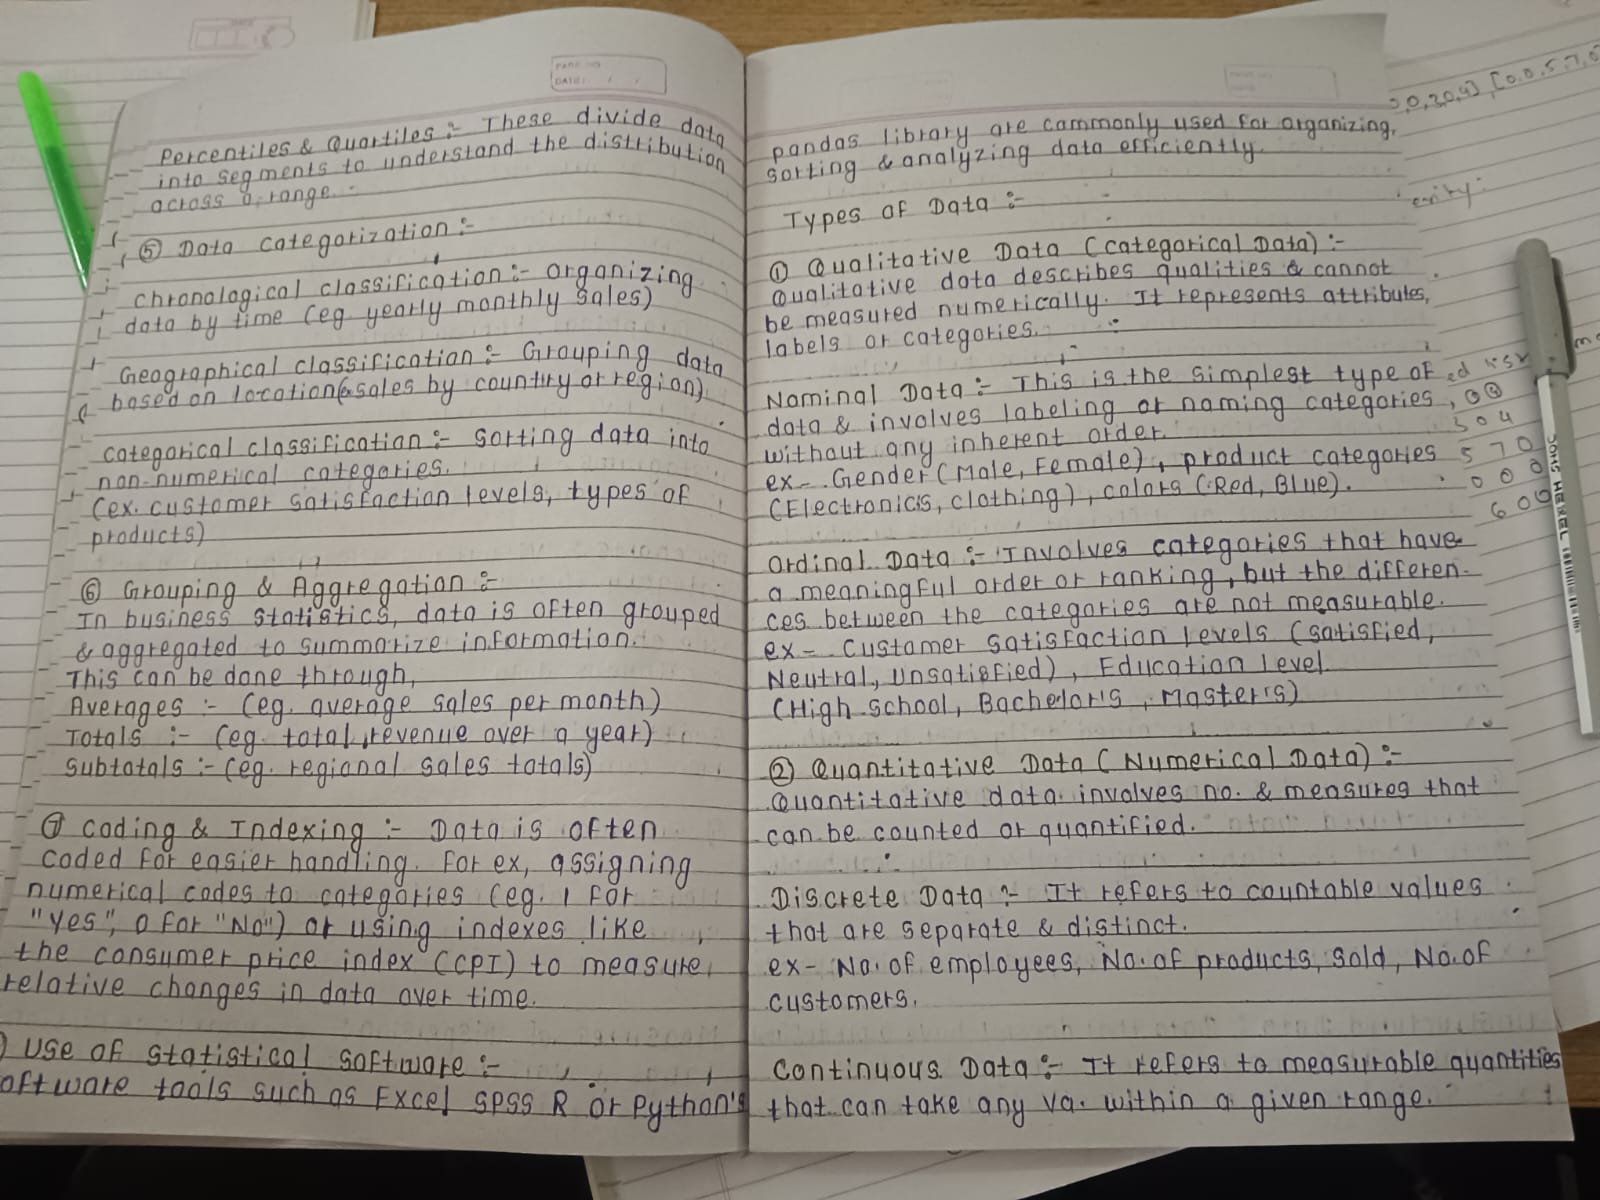 PAGE NO
DATE: / /
Percentiles & Quartiles :- These divide data
into segments to understand the distribution
across a range.
⑤ Data categorization :-
Chronological classification :- organizing
data by time (eg. yearly monthly sales)
Geographical classification :- Grouping data
based on location(sales by country or region)
categorical classification :- sorting data into
non-numerical categories.
(ex. customer satisfaction levels, types of
products)
⑥ Grouping & Aggregation :-
In business statistics, data is often grouped
& aggregated to summarize information.
This can be done through,
Averages :- (eg. average sales per month)
Totals :- (eg. total revenue over a year)
Subtotals :- (eg. regional sales totals)
⑦ Coding & Indexing :- Data is often
coded for easier handling. For ex, assigning
numerical codes to categories (eg. 1 for
"Yes", 0 for "No") or using indexes like
the consumer price index (CPI) to measure
relative changes in data over time.
) Use of statistical software :-
oftware tools such as Excel SPSS R or Python's
pandas library are commonly used for organizing,
sorting & analyzing data efficiently.
Types of Data :-
① Qualitative Data (Categorical Data) :-
Qualitative data describes qualities & cannot
be measured numerically. It represents attributes,
labels or categories.
Nominal Data :- This is the simplest type of
data & involves labeling or naming categories,
without any inherent order.
ex- Gender (Male, Female), product categories
(Electronics, clothing), colors (Red, Blue).
Ordinal Data :- Involves categories that have
a meaningful order or ranking, but the differen-
ces between the categories are not measurable.
ex- Customer satisfaction levels (satisfied,
Neutral, Unsatisfied), Education level
(High school, Bachelor's, Master's)
② Quantitative Data (Numerical Data) :-
Quantitative data involves no. & measures that
can be counted or quantified.
Discrete Data :- It refers to countable values
that are separate & distinct.
ex- No. of employees, No. of products, sold, No. of
customers.
Continuous Data :- It refers to measurable quantities
that can take any va. within a given range.
304
570
000
600